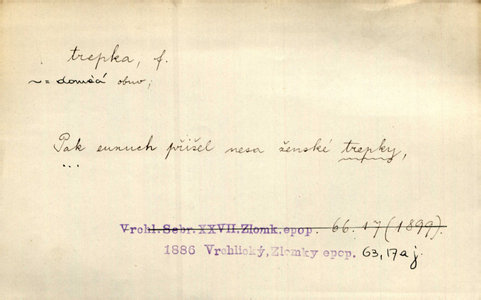 trepka, f.
~ = domácí obuv;
Pak eunuch přišel nesa ženské trepky,
...
Vrchl.Sebr.XXVII.Zlomk.epop. 66.17 (1899).
1886 Vrchlický, Zlomky epop. 63,17 a j.